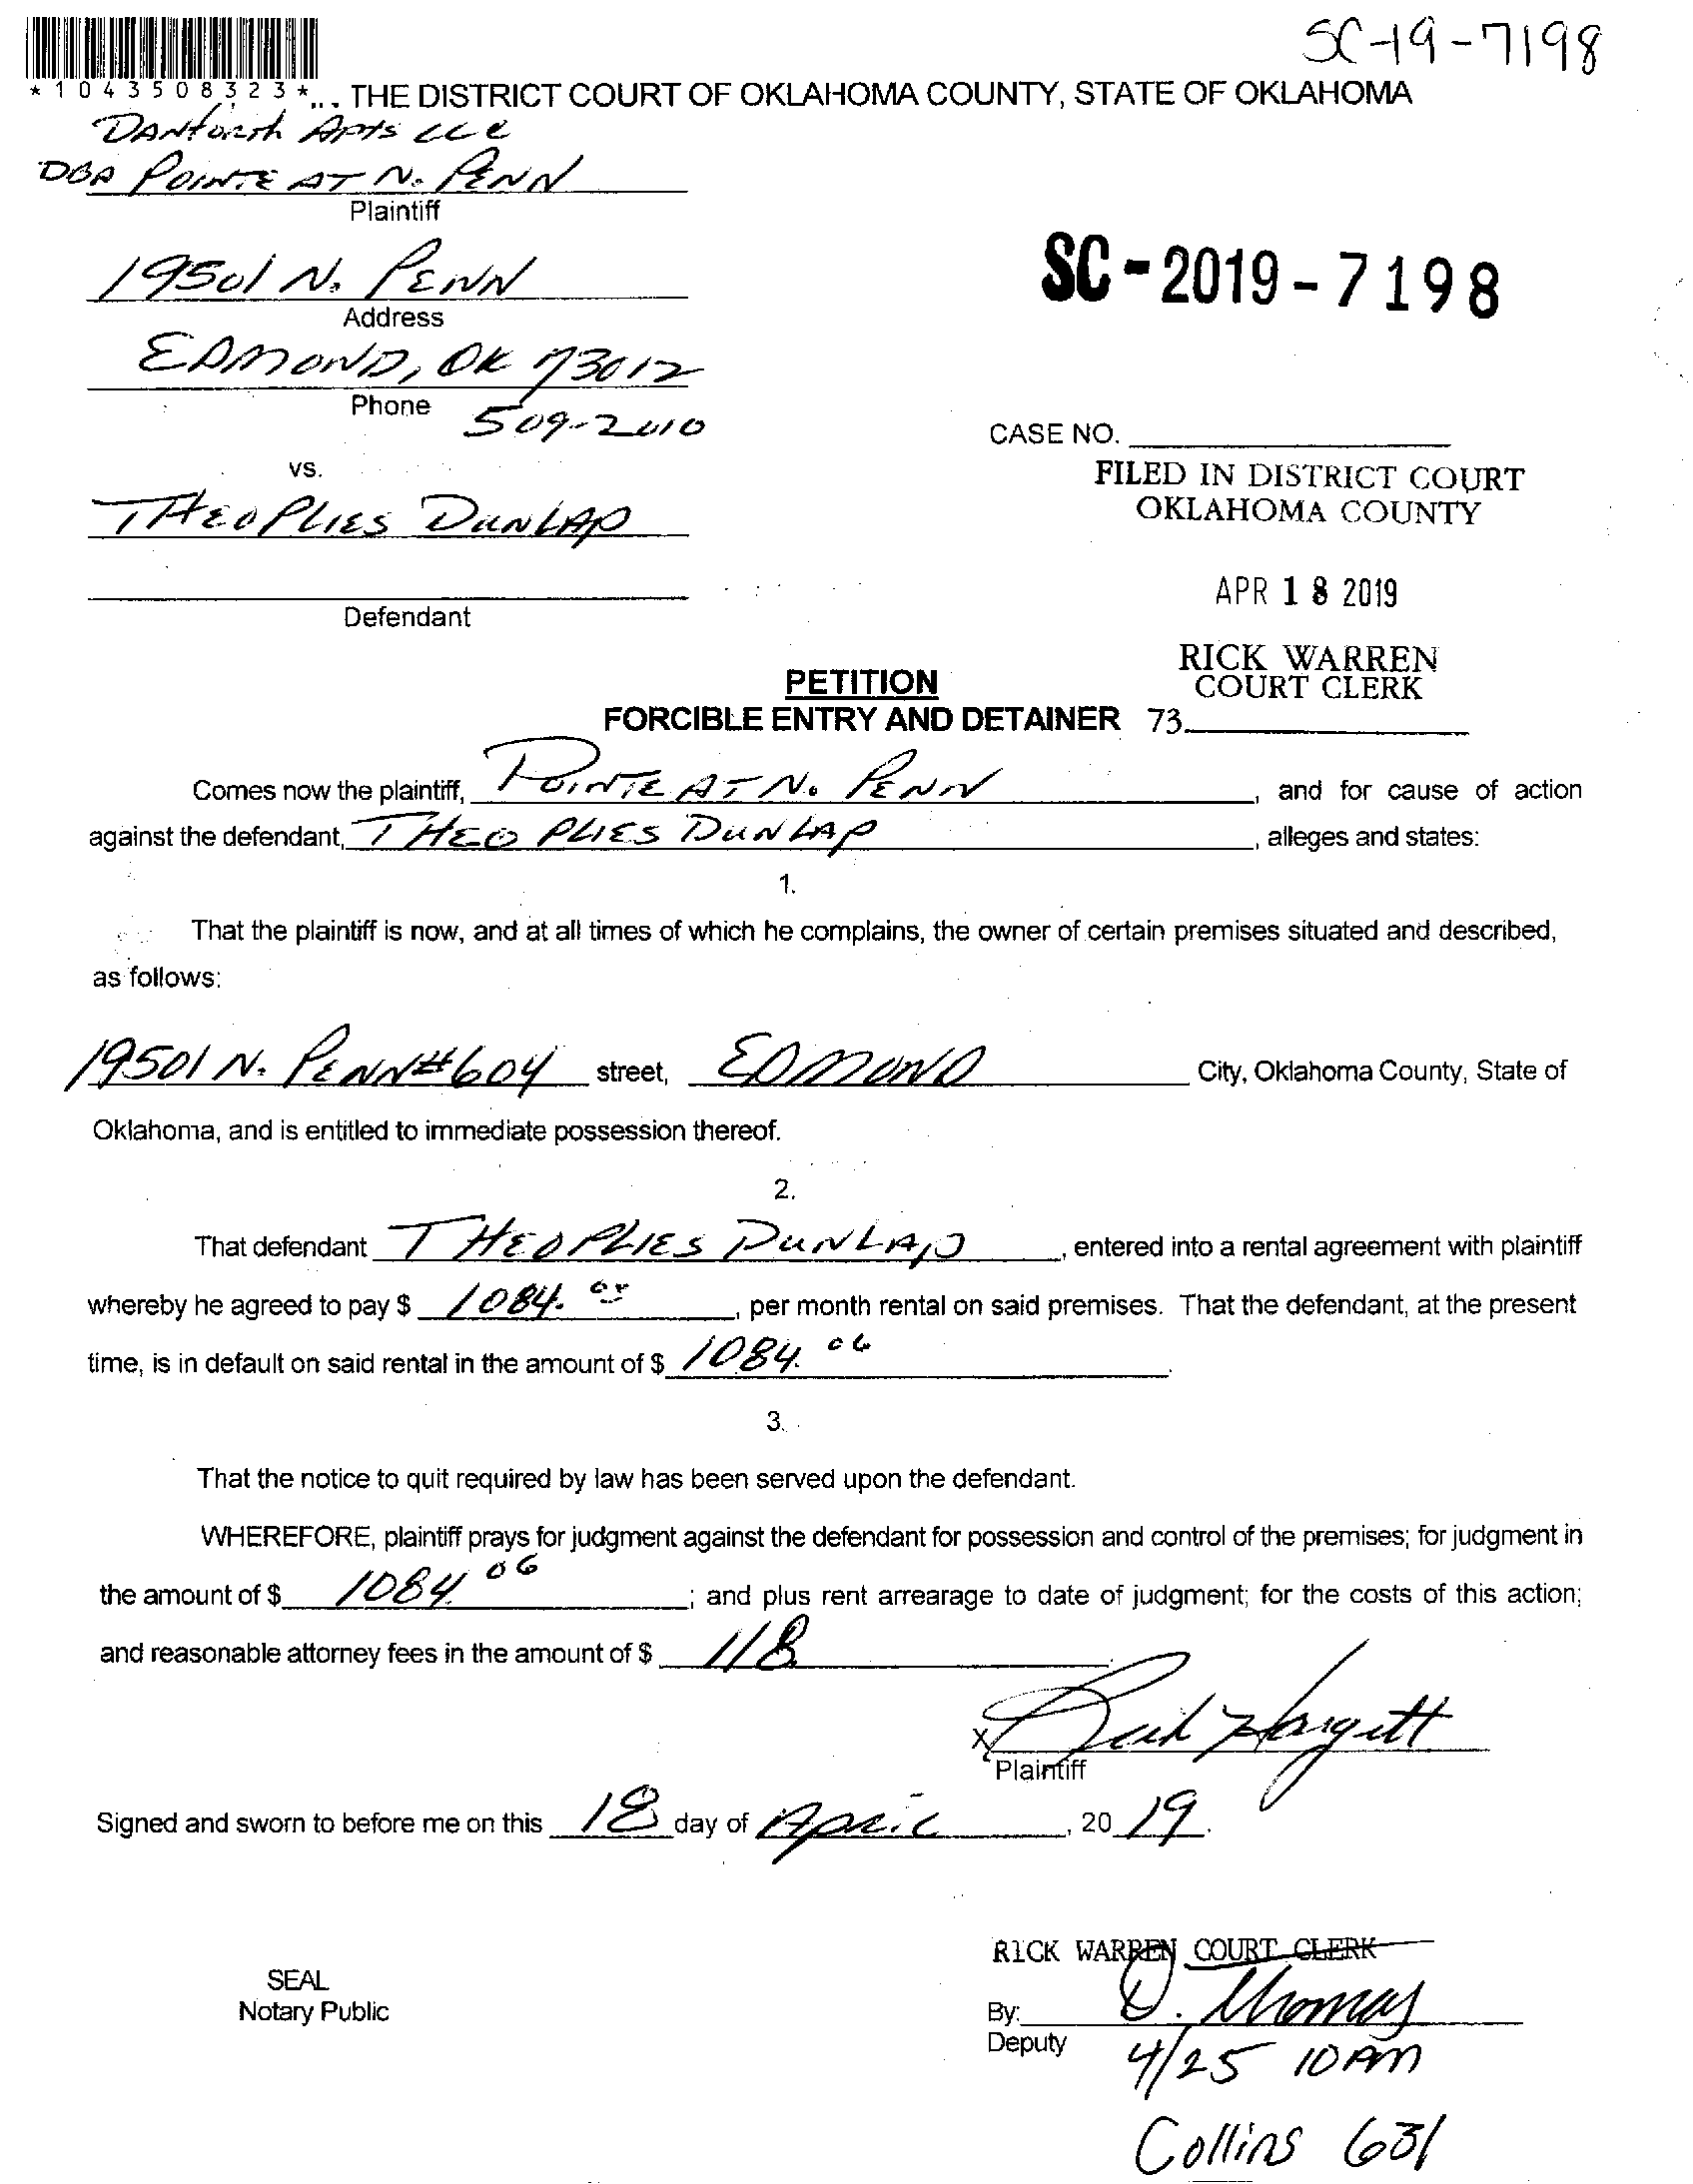 SC-19-7198
*1043508323*
THE DISTRICT COURT OF OKLAHOMA COUNTY, STATE OF OKLAHOMA
DANforth Apts LLC
DBA POINTE AT N. PENN
Plaintiff
19501 N. PENN
Address
SC-2019-7198
EDMOND, OK 73012
Phone
509-2010
CASE NO.
vs.
FILED IN DISTRICT COURT
OKLAHOMA COUNTY
THEOPLIES DUNLAP
APR 18 2019
Defendant
RICK WARREN
COURT CLERK
PETITION
FORCIBLE ENTRY AND DETAINER 73
Comes now the plaintiff, POINTE AT N. PENN, and for cause of action
against the defendant, THEOPLIES DUNLAP, alleges and states:
1.
That the plaintiff is now, and at all times of which he complains, the owner of certain premises situated and described,
as follows:
19501 N. PENN #604 street, EDMOND City, Oklahoma County, State of
Oklahoma, and is entitled to immediate possession thereof.
2.
That defendant THEOPLIES DUNLAP, entered into a rental agreement with plaintiff
whereby he agreed to pay $ 1084., per month rental on said premises. That the defendant, at the present
time, is in default on said rental in the amount of $ 1084.06.
3.
That the notice to quit required by law has been served upon the defendant.
WHEREFORE, plaintiff prays for judgment against the defendant for possession and control of the premises; for judgment in
the amount of $ 1084.06; and plus rent arrearage to date of judgment; for the costs of this action;
and reasonable attorney fees in the amount of $ 118.
X Hargett
Plaintiff
Signed and sworn to before me on this 18 day of April, 2019.
RICK WARREN COURT CLERK
SEAL
Notary Public
By: D. Thomas
Deputy
4/25 10 AM
Collins 631